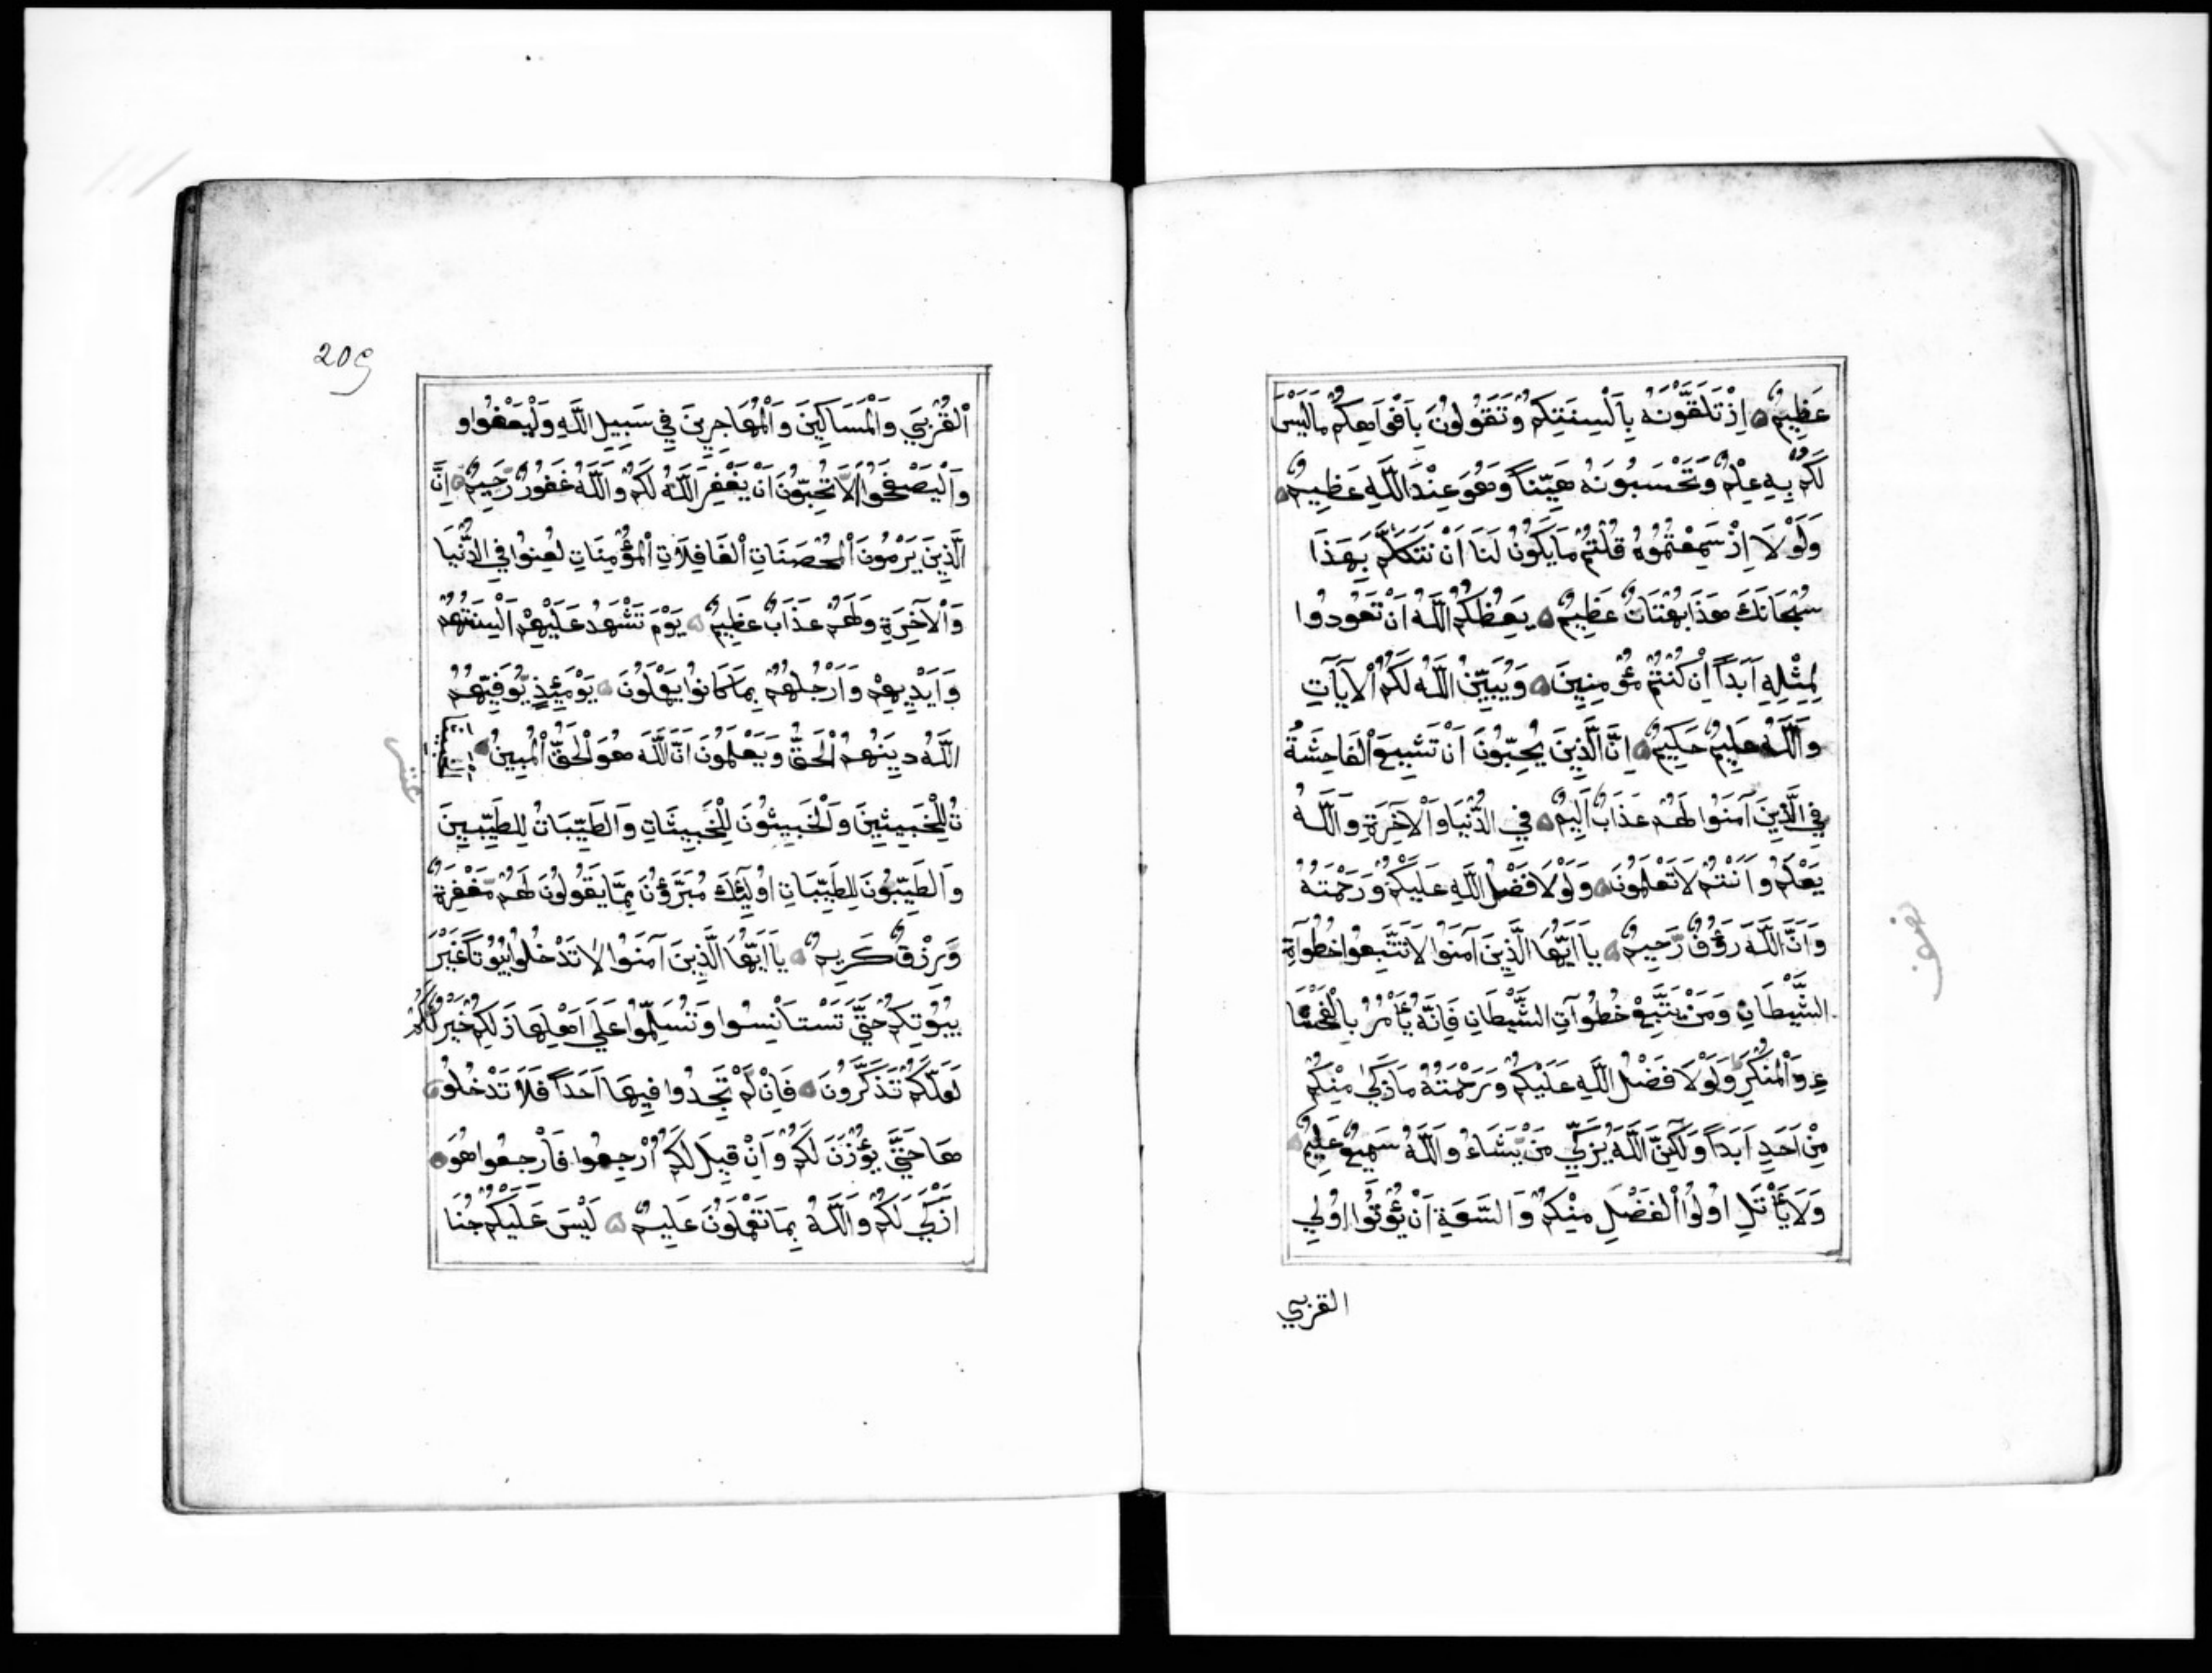 عَظِيمٌ اِذْ تَلَقَّوْنَهُ بِاَلْسِنَتِكُمْ وَتَقُولُونَ بِاَفْوَاهِكُمْ مَا لَيْسَ
لَكُمْ بِهِ عِلْمٌ وَتَحْسَبُونَهُ هَيِّنًا وَهُوَ عِنْدَ اللَّهِ عَظِيمٌ
وَلَوْلَا اِذْ سَمِعْتُمُوهُ قُلْتُمْ مَا يَكُونُ لَنَا اَنْ نَتَكَلَّمَ بِهَذَا
سُبْحَانَكَ هَذَا بُهْتَانٌ عَظِيمٌ يَعِظُكُمُ اللَّهُ اَنْ تَعُودُوا
لِمِثْلِهِ اَبَدًا اِنْ كُنْتُمْ مُؤْمِنِينَ وَيُبَيِّنُ اللَّهُ لَكُمُ الْآيَاتِ
وَاللَّهُ عَلِيمٌ حَكِيمٌ اِنَّ الَّذِينَ يُحِبُّونَ اَنْ تَشِيعَ الْفَاحِشَةُ
فِي الَّذِينَ آمَنُوا لَهُمْ عَذَابٌ اَلِيمٌ فِي الدُّنْيَا وَالْآخِرَةِ وَاللَّهُ
يَعْلَمُ وَاَنْتُمْ لَا تَعْلَمُونَ وَلَوْلَا فَضْلُ اللَّهِ عَلَيْكُمْ وَرَحْمَتُهُ
وَاَنَّ اللَّهَ رَؤُفٌ رَّحِيمٌ يَا اَيُّهَا الَّذِينَ آمَنُوا لَا تَتَّبِعُوا خُطُوَاةِ
الشَّيْطَانِ وَمَنْ يَتَّبِعْ خُطُوَآتِ الشَّيْطَانِ فَاِنَّهُ يَأْمُرُ بِالْفَحْشَا
ءِ وَالْمُنْكَرِ وَلَوْلَا فَضْلُ اللَّهِ عَلَيْكُمْ وَرَحْمَتُهُ مَا زَكَىٰ مِنْكُمْ
مِنْ اَحَدٍ اَبَدًا وَلَكِنَّ اللَّهَ يُزَكِّي مَنْ يَّشَاءُ وَاللَّهُ سَمِيعٌ عَلِيمٌ
وَلَا يَأْتَلِ اُولُوا الْفَضْلِ مِنْكُمْ وَالسَّعَةِ اَنْ يُؤْتُوا اُولِي
القربي
209
الْقُرْبَي وَالْمَسَاكِينَ وَالْمُهَاجِرِينَ فِي سَبِيلِ اللَّهِ وَلْيَعْفُوا و
وَالْيَصْفَحُوا اَلَا تُحِبُّونَ اَنْ يَغْفِرَ اللَّهُ لَكُمْ وَاللَّهُ غَفُورٌ رَّحِيمٌ اِنَّ
الَّذِينَ يَرْمُونَ الْمُحْصَنَاتِ الْغَافِلَاتِ الْمُؤْمِنَاتِ لُعِنُوا فِي الدُّنْيَا
وَالْآخِرَةِ وَلَهُمْ عَذَابٌ عَظِيمٌ يَوْمَ تَشْهَدُ عَلَيْهِمْ اَلْسِنَتُهُمْ
وَاَيْدِيهِمْ وَاَرْجُلُهُمْ بِمَا كَانُوا يَعْمَلُونَ يَوْمَئِذٍ يُّوَفِّيهُمُ
اللَّهُ دِينَهُمُ الْحَقَّ وَيَعْلَمُونَ اَنَّ اللَّهَ هُوَ الْحَقُّ الْمُبِينُ
تُ لِلْخَبِيثِينَ وَالْخَبِيثُونَ لِلْخَبِيثَاتِ وَالطَّيِّبَاتُ لِلطَّيِّبِينَ
وَالطَّيِّبُونَ لِلطَّيِّبَاتِ اُولَئِكَ مُبَرَّؤُنَ مِمَّا يَقُولُونَ لَهُمْ مَّغْفِرَةٌ
وَّرِزْقٌ كَرِيمٌ يَا اَيُّهَا الَّذِينَ آمَنُوا لَا تَدْخُلُوا بُيُوتًا غَيْرَ
بُيُوتِكُمْ حَتَّى تَسْتَانِسُوا وَتُسَلِّمُوا عَلَى اَهْلِهَا ذَلِكُمْ خَيْرٌ لَّكُمْ
لَعَلَّكُمْ تَذَكَّرُونَ فَاِنْ لَّمْ تَجِدُوا فِيهَا اَحَدًا فَلَا تَدْخُلُو
هَا حَتَّى يُؤْذَنَ لَكُمْ وَاِنْ قِيلَ لَكُمُ ارْجِعُوا فَارْجِعُوا هُوَ
اَزْكَى لَكُمْ وَاللَّهُ بِمَا تَعْمَلُونَ عَلِيمٌ لَيْسَ عَلَيْكُمْ جُنَا